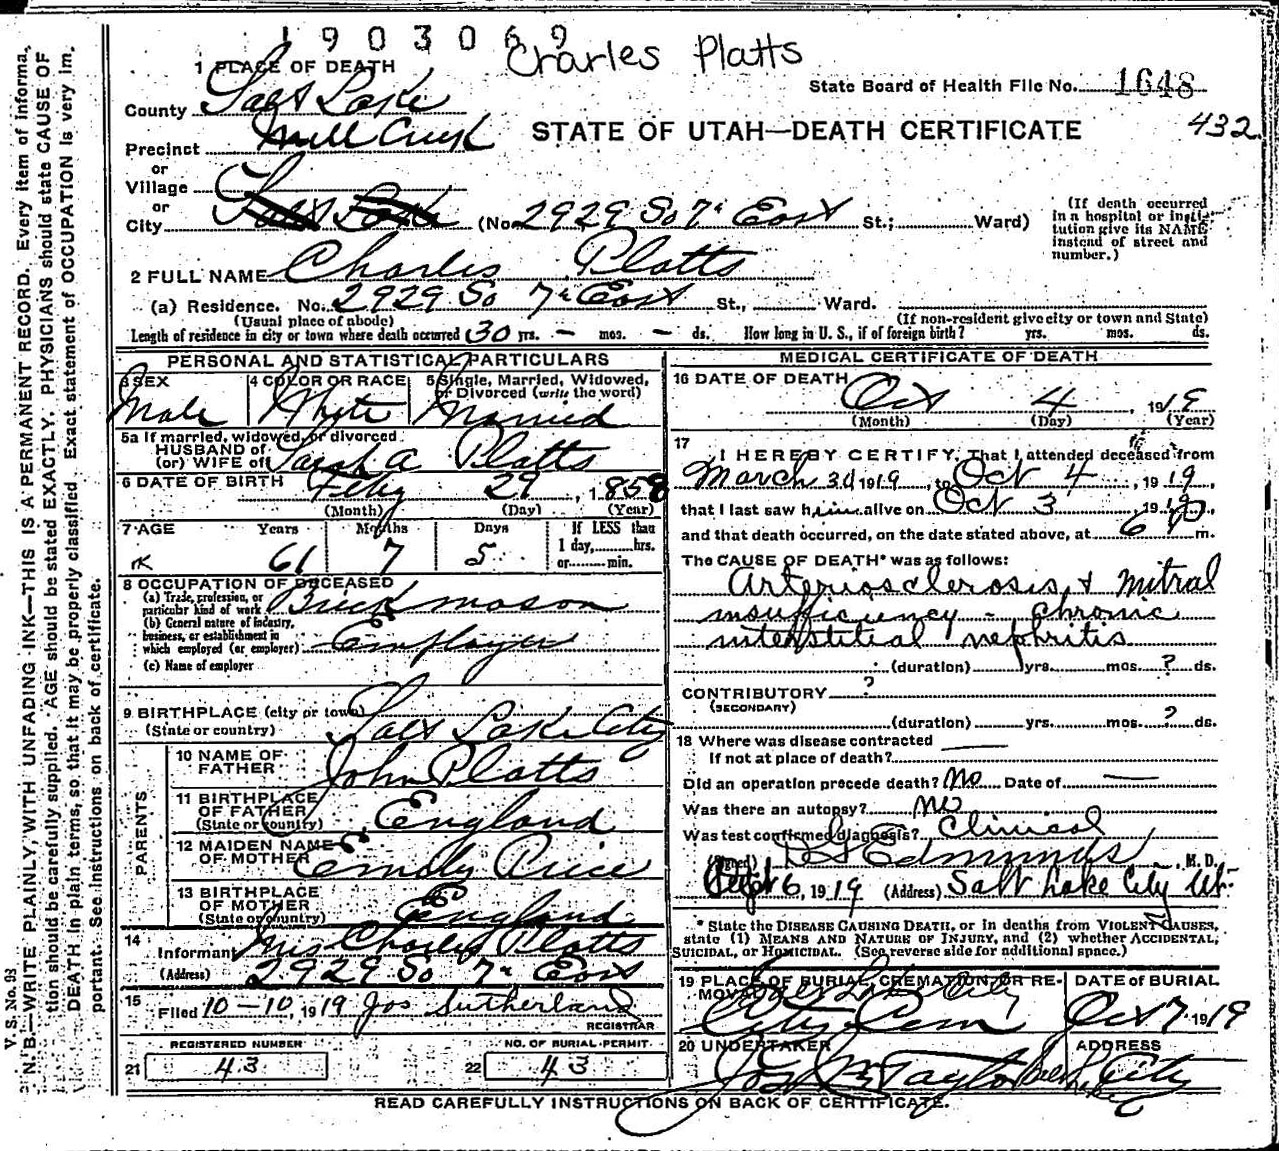 1903069
Charles Platts
1 PLACE OF DEATH
State Board of Health File No. 1648
County Salt Lake
STATE OF UTAH—DEATH CERTIFICATE 432
Precinct Mill Creek
or
Village
or
City Salt Lake (No. 2929 So 7th East St.; Ward)
(If death occurred
in a hospital or insti-
tution give its NAME
instead of street and
number.)
2 FULL NAME Charles Platts
(a) Residence. No. 2929 So 7th East St., Ward.
(Usual place of abode) (If non-resident give city or town and State)
Length of residence in city or town where death occurred 30 yrs. - mos. - ds. How long in U. S., if of foreign birth? yrs. mos. ds.
PERSONAL AND STATISTICAL PARTICULARS
3 SEX Male
4 COLOR OR RACE White
5 Single, Married, Widowed,
or Divorced (write the word)
Married
5a If married, widowed, or divorced
HUSBAND of
(or) WIFE of Sarah A Platts
6 DATE OF BIRTH Feby 29, 1858
(Month) (Day) (Year)
7 AGE Years Months Days If LESS than
61 7 5 1 day,......hrs.
or......min.
8 OCCUPATION OF DECEASED
(a) Trade, profession, or
particular kind of work Brick mason
(b) General nature of industry,
business, or establishment in
which employed (or employer) Employer
(c) Name of employer
9 BIRTHPLACE (city or town)
(State or country) Salt Lake City
PARENTS
10 NAME OF
FATHER John Platts
11 BIRTHPLACE
OF FATHER
(State or country) England
12 MAIDEN NAME
OF MOTHER Emily Price
13 BIRTHPLACE
OF MOTHER
(State or country) England
14
Informant Mrs Charles Platts
(Address) 2929 So 7th East
15
Filed 10-10, 1919 Jos Sutherland
REGISTRAR
REGISTERED NUMBER
21 43
NO. OF BURIAL PERMIT
22 43
MEDICAL CERTIFICATE OF DEATH
16 DATE OF DEATH
Oct 4, 1919
(Month) (Day) (Year)
17
I HEREBY CERTIFY, That I attended deceased from
March 3d 1919, to Oct 4, 1919,
that I last saw him alive on Oct 3, 1919,
and that death occurred, on the date stated above, at 6 P m.
The CAUSE OF DEATH* was as follows:
Arteriosclerosis & mitral
insufficiency - chronic
interstitial nephritis
(duration) yrs. mos. ? ds.
CONTRIBUTORY ?
(SECONDARY)
(duration) yrs. mos. ? ds.
18 Where was disease contracted
If not at place of death?
Did an operation precede death? No Date of
Was there an autopsy? no
Was test confirmed diagnosis? Clinical
(Signed) Edmunds, M. D.
6, 1919 (Address) Salt Lake City Ut.
*State the DISEASE CAUSING DEATH, or in deaths from VIOLENT CAUSES,
state (1) MEANS AND NATURE OF INJURY, and (2) whether ACCIDENTAL,
SUICIDAL, or HOMICIDAL. (See reverse side for additional space.)
19 PLACE OF BURIAL, CREMATION OR RE-
MOVAL Salt Lake City
City Cem
DATE OF BURIAL
Oct 7 1919
20 UNDERTAKER
Jos Wm Taylor
ADDRESS
City
READ CAREFULLY INSTRUCTIONS ON BACK OF CERTIFICATE.
V. S. No. 93
N. B.—WRITE PLAINLY, WITH UNFADING INK—THIS IS A PERMANENT RECORD. Every item of informa-
tion should be carefully supplied. AGE should be stated EXACTLY. PHYSICIANS should state CAUSE OF
DEATH in plain terms, so that it may be properly classified. Exact statement of OCCUPATION is very im-
portant. See instructions on back of certificate.